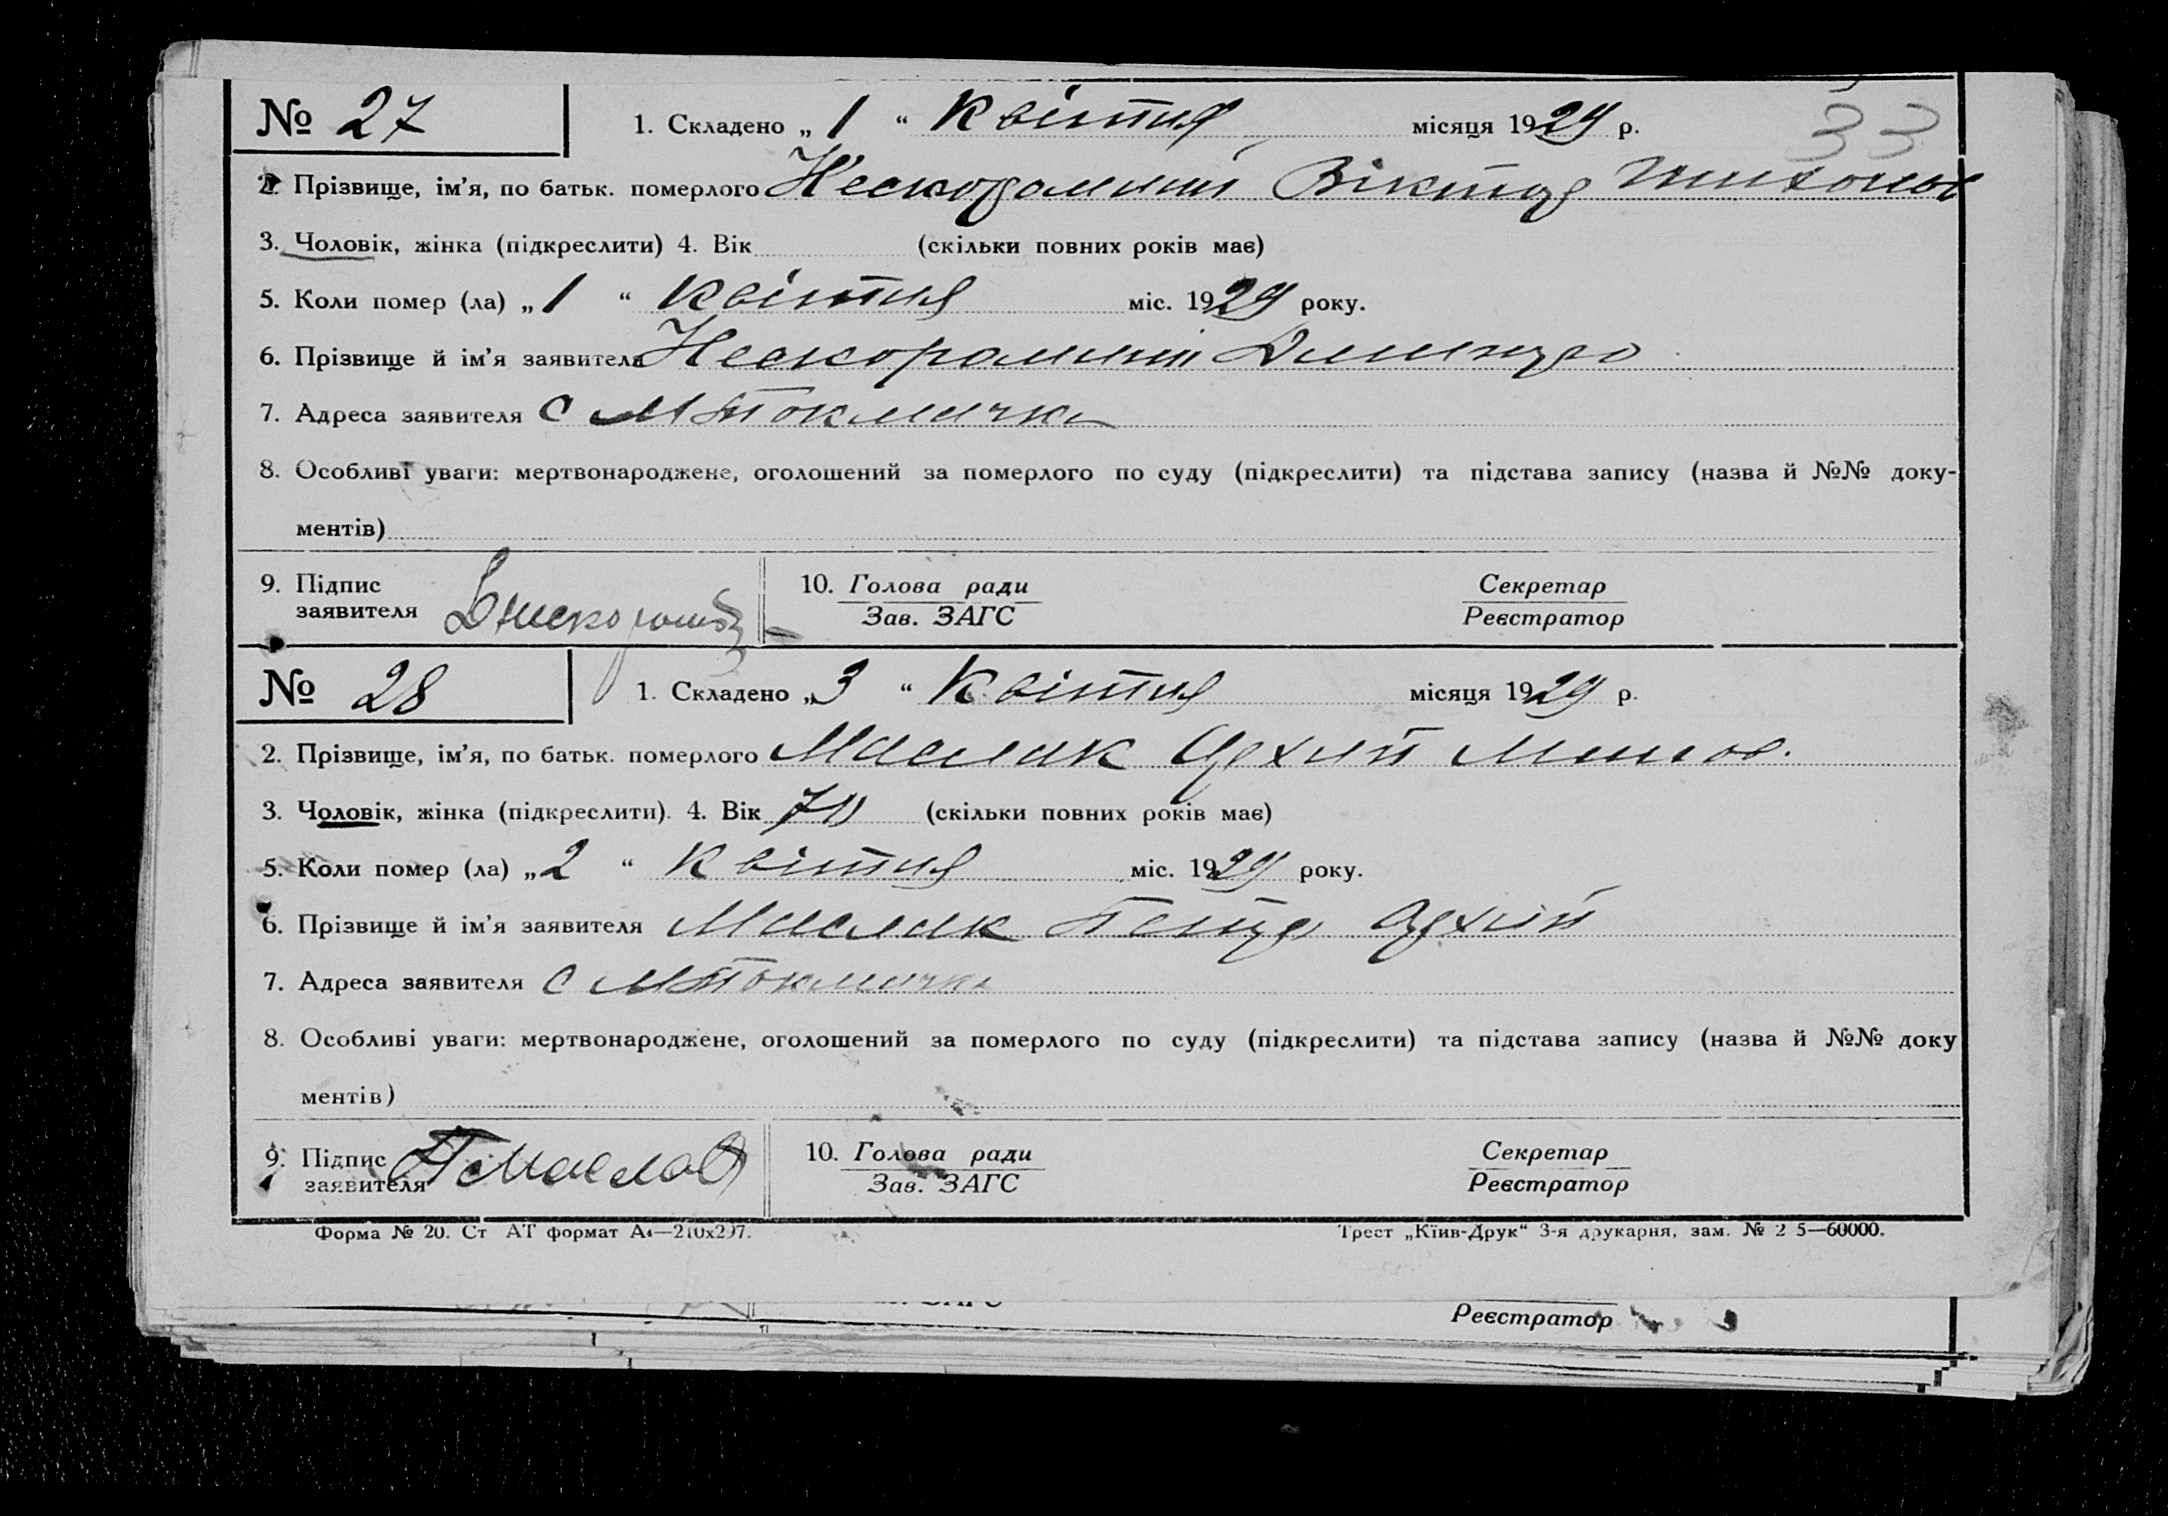 33
№ 27 1. Складено „ 1 “ Квітня місяця 1929 р.
2. Прізвище, ім’я, по батьк. померлого Нескоромний Віктор Тихонов
3. Чоловік, жінка (підкреслити) 4. Вік (скільки повних років має)
5. Коли помер (ла) „ 1 “ Квітня міс. 1929 року.
6. Прізвище й ім’я заявителя Нескоромний Дмитро
7. Адреса заявителя с М Токмачка
8. Особливі уваги: мертвонароджене, оголошений за померлого по суду (підкреслити) та підстава запису (назва й №№ доку-
ментів)
9. Підпис заявителя
10. Голова ради Секретар
Зав. ЗАГС Реєстратор
№ 28 1. Складено „ 3 “ Квітня місяця 1929 р.
2. Прізвище, ім’я, по батьк. померлого Маслак
3. Чоловік, жінка (підкреслити). 4. Вік 70 (скільки повних років має)
5. Коли помер (ла) „ 2 “ Квітня міс. 1929 року.
6. Прізвище й ім’я заявителя Маслак Петро
7. Адреса заявителя с М Токмачка
8. Особливі уваги: мертвонароджене, оголошений за померлого по суду (підкреслити) та підстава запису (назва й №№ доку
ментів)
9. Підпис заявителя
10. Голова ради Секретар
Зав. ЗАГС Реєстратор
Форма № 20. Ст АТ формат А4—210х297. Трест „Київ-Друк“ 3-я друкарня, зам. № 2 5—60000.
Реєстратор